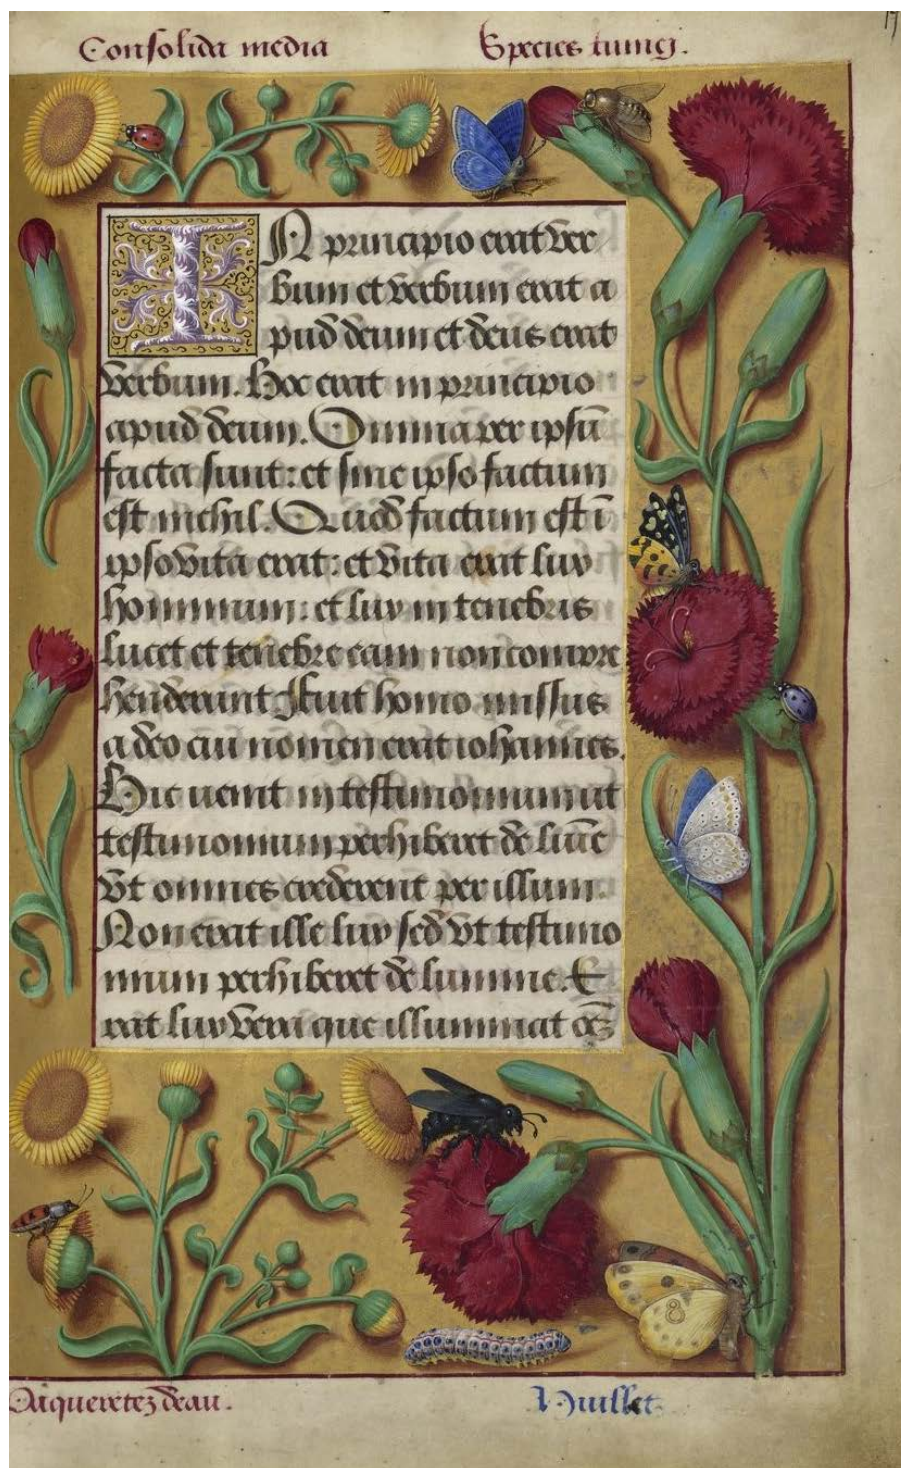 Consolida media
Species tunicj.
17
IN principio erat ver
bum et verbum erat a
pud deum et deus erat
verbum. Hoc erat in principio
apud deum. Omnia per ipsū
facta sunt: et sine ipso factum
est nichil. Quod factum est ī
ipso vita erat: et vita erat lux
hominum: et lux in tenebris
lucet et tenebre eam non compre
henderunt Fuit homo missus
a deo cui nomen erat iohannes.
Hic uenit in testimonium ut
testimonium perhiberet de lumīe
Vt omnes crederent per illum.
Non erat ille lux sed vt testimo
nium perhiberet de lumine. E
rat lux vera que illuminat oēz
Paqueretez deau.
Ouillet